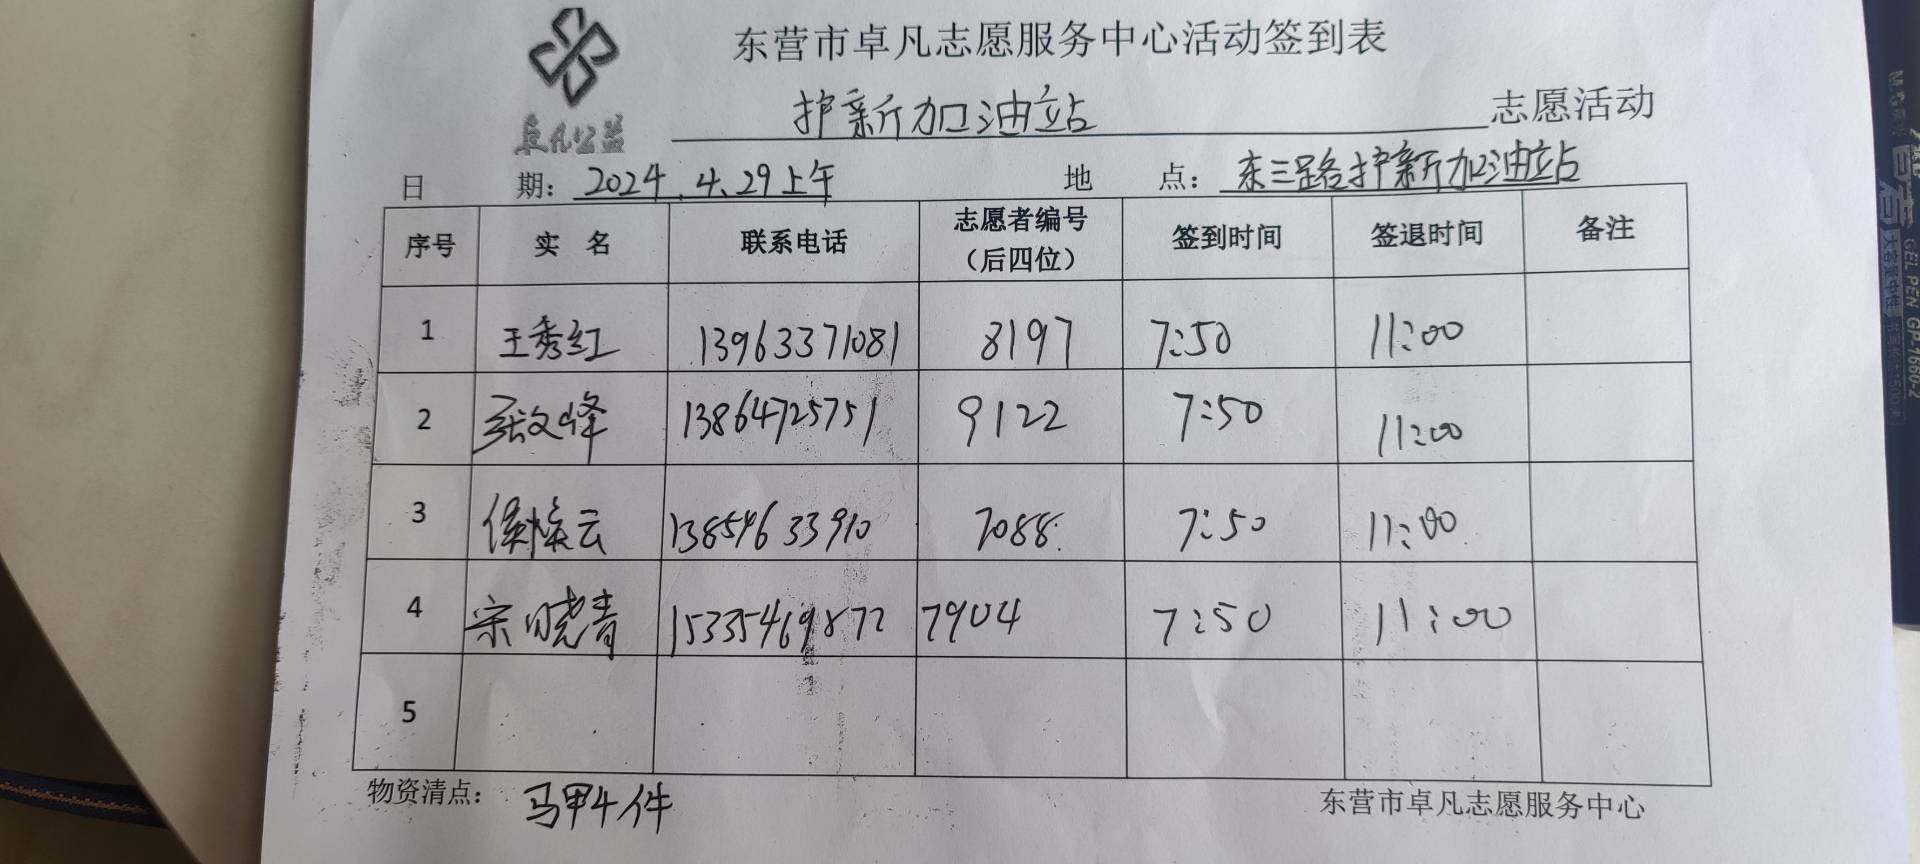 东营市卓凡志愿服务中心活动签到表
卓凡公益
护新加油站 志愿活动
日 期：2024.4.29上午 地 点：东三路护新加油站
序号 实 名 联系电话 志愿者编号（后四位） 签到时间 签退时间 备注
1 王秀红 13963371081 8197 7:50 11:00
2 张文峰 13864725751 9122 7:50 11:00
3 侯焕云 13854633910 7088 7:50 11:00
4 宗晓青 15335469872 7904 7:50 11:00
5
物资清点：马甲4件 东营市卓凡志愿服务中心
M&G
GEL PEN GP-1660-2
大容量中性